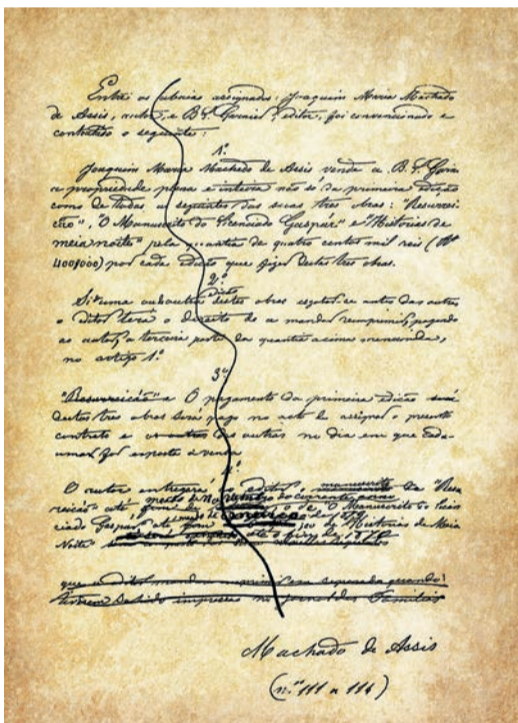 Entre os abaixo assignados, Joaquim Maria Machado
de Assis, autor, e B. L. Garnier, editor, foi convencionado e
contratado o seguinte:
1º
Joaquim Maria Machado de Assis vende a B. L. Garnier
a propriedade plena e inteira não só da primeira edição
como de todas as seguintes das suas tres obras: "Resurrei-
ção", "O Manuscrito do licenciado Gaspar" e "Historias de
meia noite" pela quantia de quatro centos mil reis (Rs
400$000) por cada edição que fizer destas tres obras.
2º
edição
Si uma ou outra destas obras esgotar-se antes das outras
o editor terá o direito de a mandar reimprimir, pagando
ao autor a terceira parte da quantia acima mencionada,
no artigo 1º
3º
"Resurreição" e O pagamento da primeira edição será
destas tres obras será pago no acto de assignar o presente
contrato e as outras das outras no dia em que cada
uma for exposta á venda
O autor entregará ao editor o manuscrito da "Resur-
reição" até meado de Novembro do corrente anno
o de "O Manuscrito do licen-
ciado Gaspar" até de Historias de Meia
Noite até o fim de 1870
que o editor mandar imprimir
tiverem sahido impressos no jornal das Familias
Machado de Assis
(nº 111 a 116)